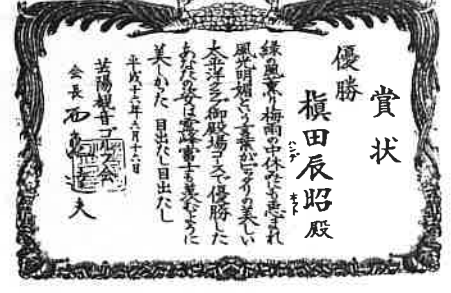 賞状
優勝
槇田辰昭殿
ハンデ
緑の風薫り梅雨の中休みにも恵まれ
風光明媚という言葉がピッタリの美しい
太平洋クラブ御殿場コースで優勝した
あなたの姿は霊峰富士も羨むように
美しかった 目出たし目出たし
平成十六年六月十六日
芙陽観音ゴルフ会
会長 西
夫